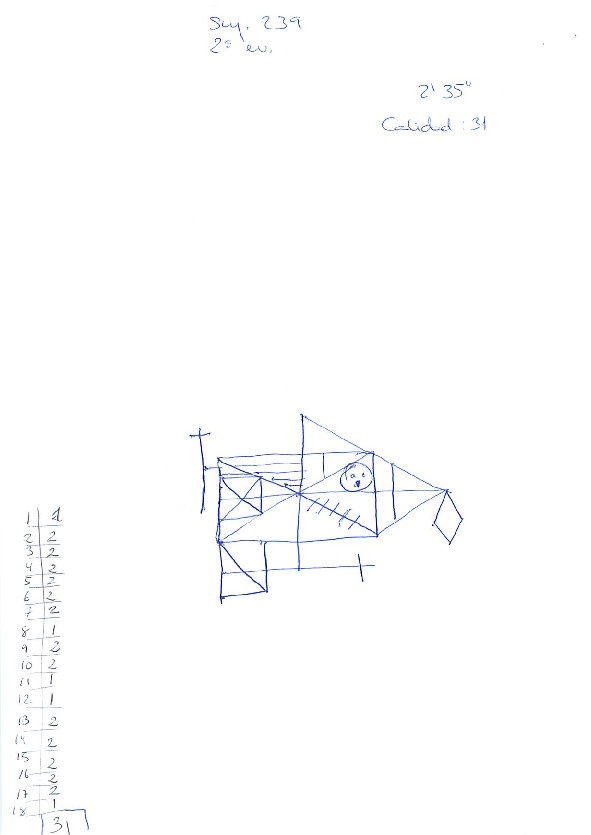 Suj. 239
2º ev.
2' 35"
Calidad : 31
1 1
2 2
3 2
4 2
5 2
6 2
7 2
8 1
9 2
10 2
11 1
12 1
13 2
14 2
15 2
16 2
17 2
18 1
31